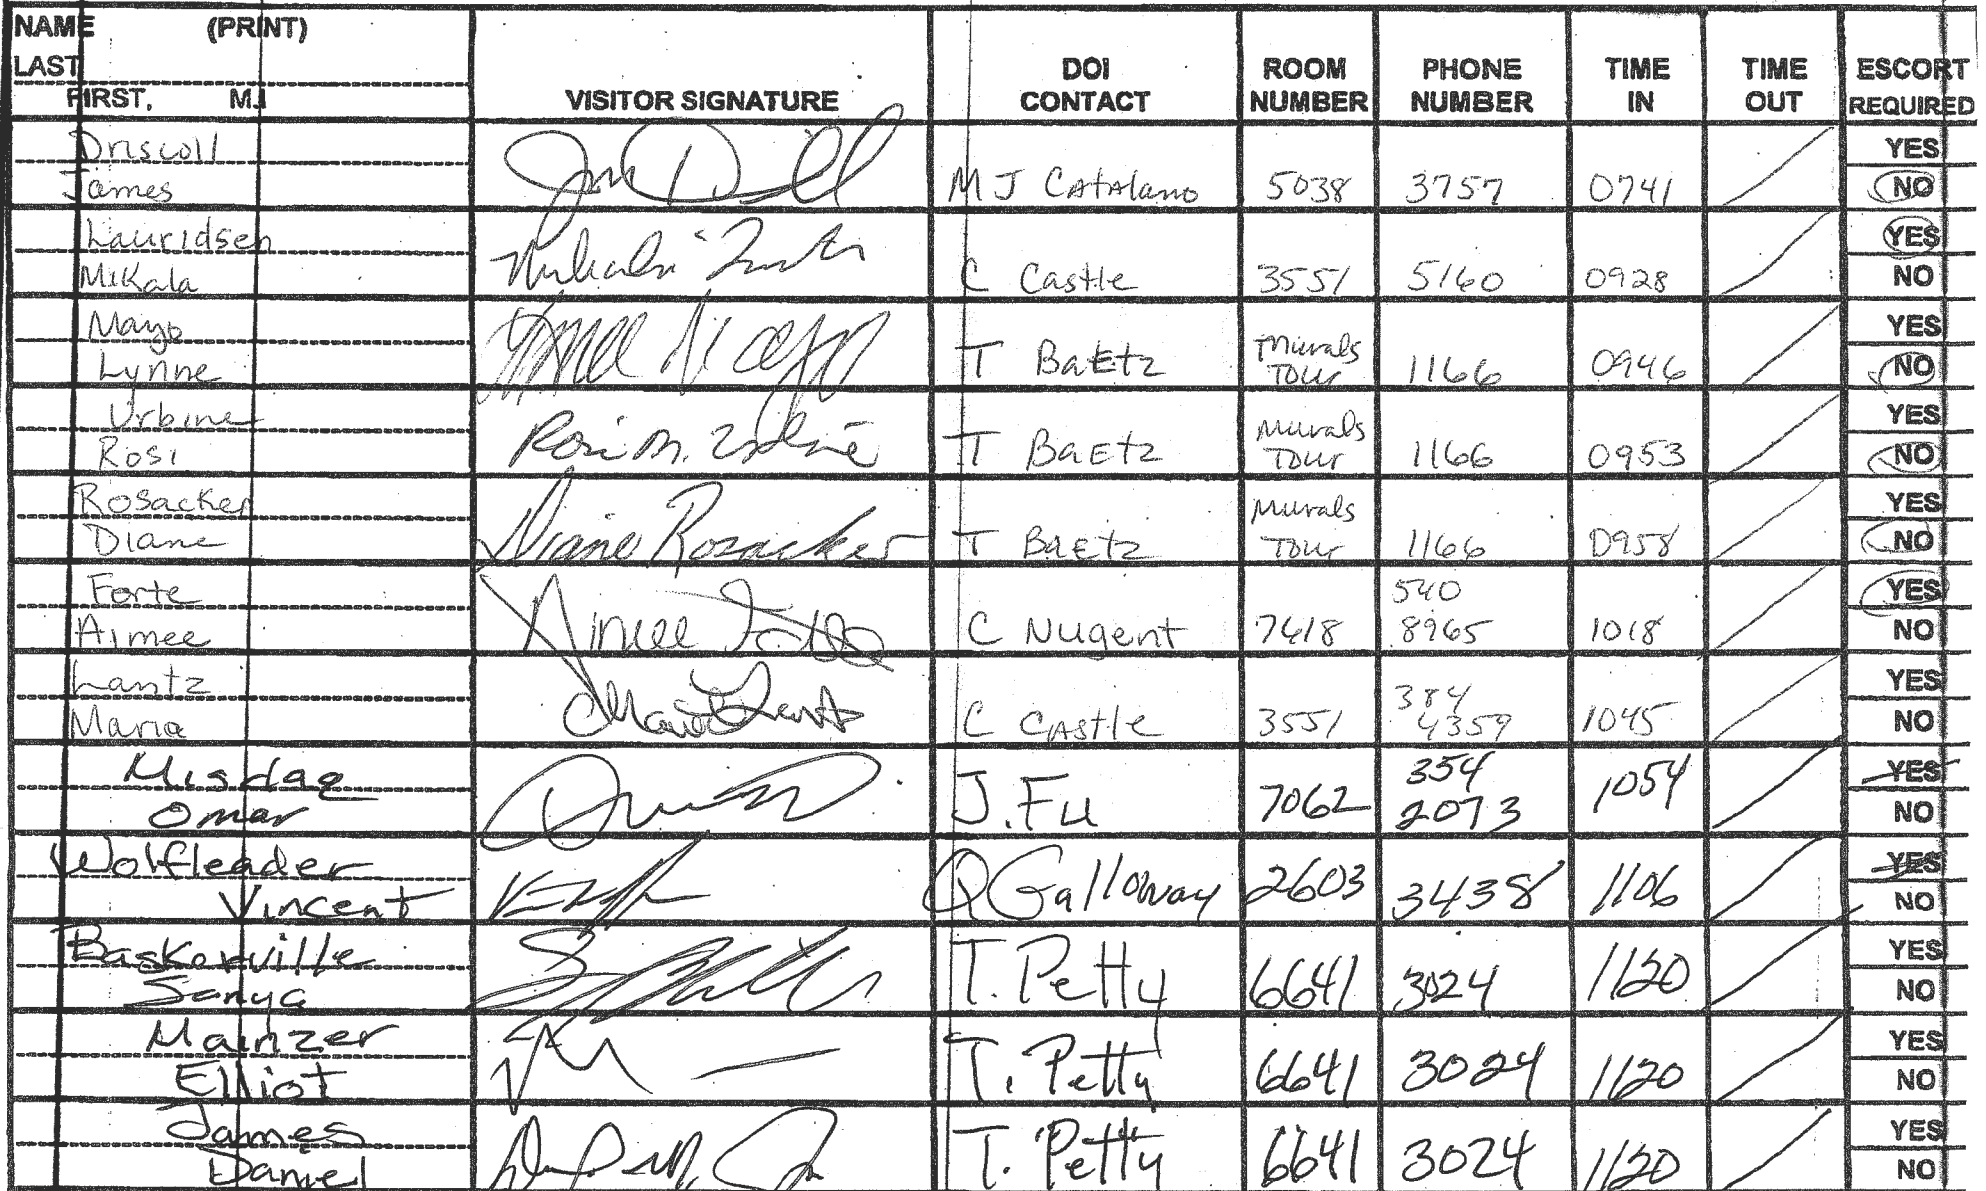 NAME (PRINT)
LAST
FIRST, M.I
VISITOR SIGNATURE
DOI CONTACT
ROOM NUMBER
PHONE NUMBER
TIME IN
TIME OUT
ESCORT REQUIRED
Driscoll
James MJ Catalano 5038 3757 0741
YES
NO
Lauridsen
Mikala C Castle 3551 5160 0928
YES
NO
Mayo
Lynne T Baetz Murals Tour 1166 0946
YES
NO
Urbine
Rosi Rosi M. Urbine T Baetz Murals Tour 1166 0953
YES
NO
Rosacker
Diane Diane Rosacker T Baetz Murals Tour 1166 0958
YES
NO
Forte
Aimee Aimee Forte C Nugent 7618 540 8965 1018
YES
NO
Lantz
Maria C Castle 3551 384 4359 1045
YES
NO
Misdaq
Omar J. Fu 7062 354 2073 1054
YES
NO
Wolfleader
Vincent Q Galloway 2603 3438 1106
YES
NO
Baskerville
Sanya T. Petty 6641 3024 1120
YES
NO
Mainzer
Elliot T. Petty 6641 3024 1120
YES
NO
James
Daniel T. Petty 6641 3024 1120
YES
NO